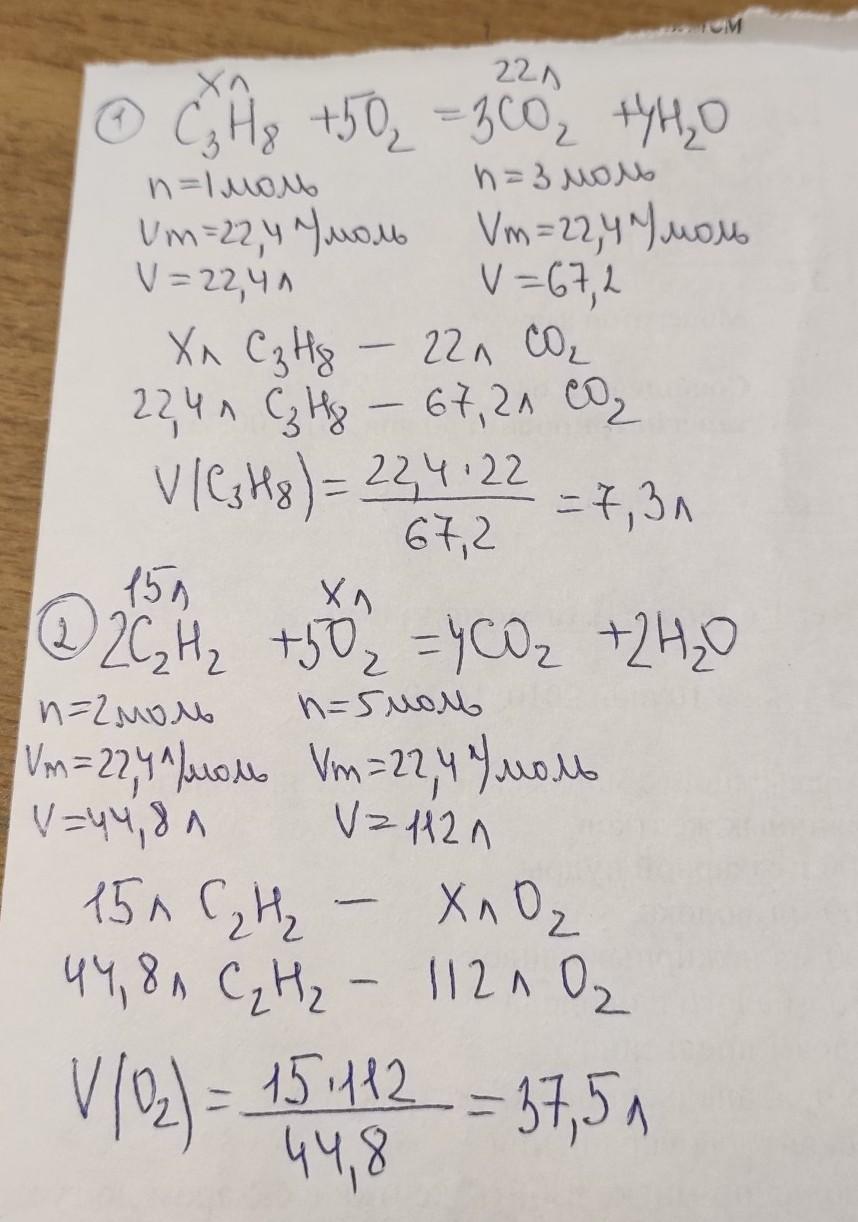 Xл 22л
① C₃H₈ +5O₂ =3CO₂ +4H₂O
n=1моль n=3моль
Vm=22,4 л/моль Vm=22,4 л/моль
V=22,4л V=67,2
Xл C₃H₈ — 22л CO₂
22,4л C₃H₈ — 67,2л CO₂
V(C₃H₈)= 22,4·22 / 67,2 =7,3л
15л Xл
② 2C₂H₂ +5O₂ =4CO₂ +2H₂O
n=2моль n=5моль
Vm=22,4 л/моль Vm=22,4 л/моль
V=44,8л V=112л
15л C₂H₂ — XлO₂
44,8л C₂H₂ — 112л O₂
V(O₂)= 15·112 / 44,8 =37,5л